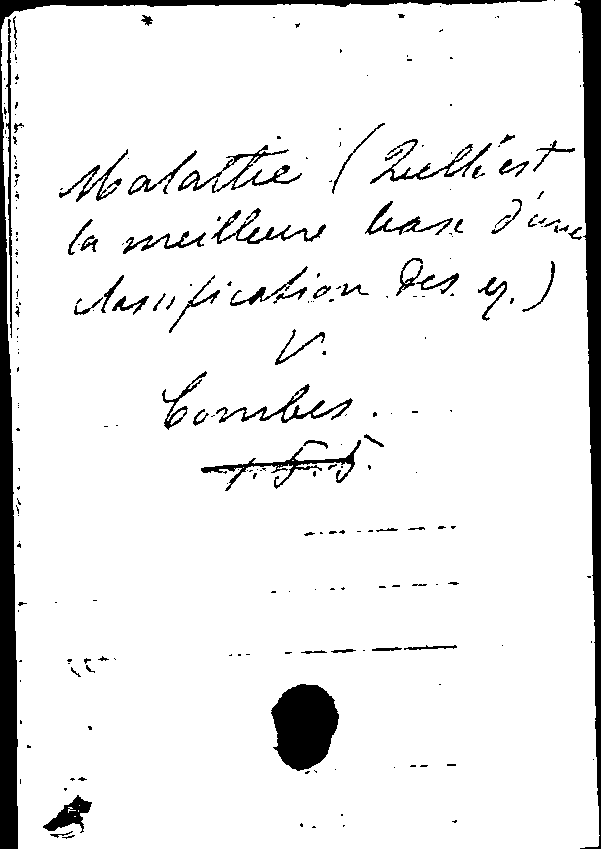 Malattie (Quelle est
la meilleure base d'une
classification des
V.
Combes.